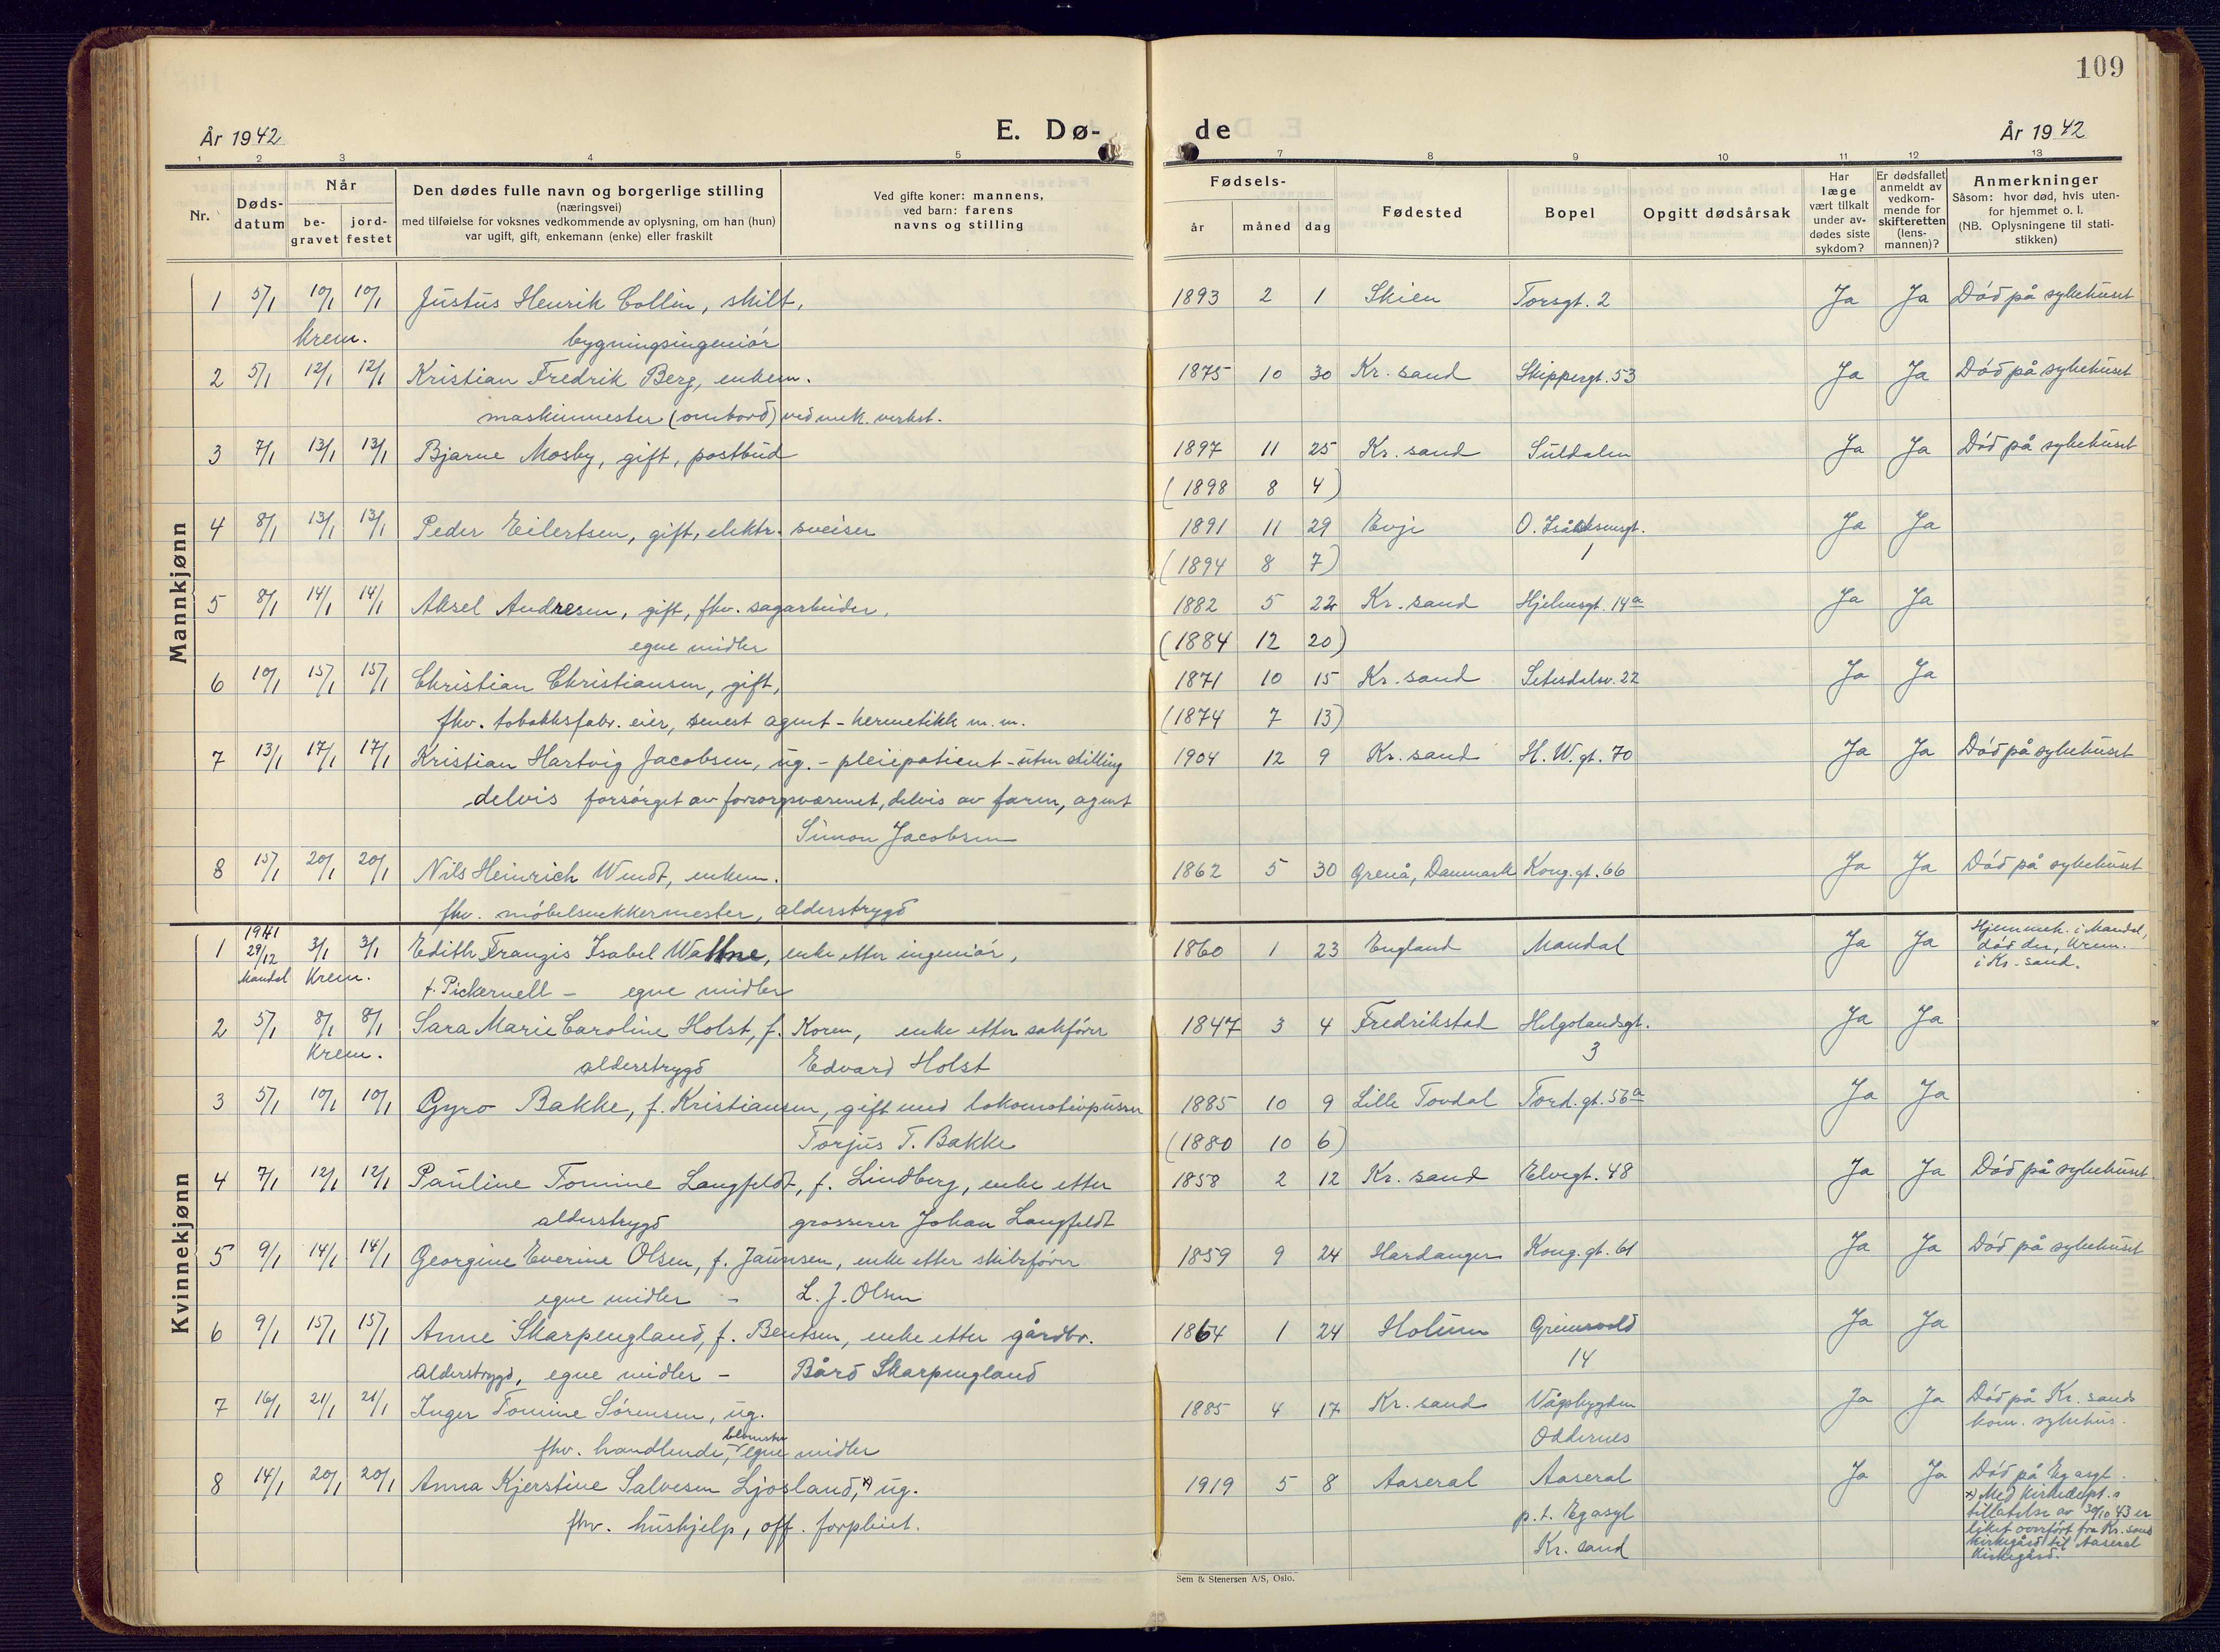 109
År 1942 E. Dø- de År 1942
1 2 3 4 5 7 8 9 10 11 12 13
Nr.
Døds-
datum
Når
be-
gravet
jord-
festet
Den dødes fulle navn og borgerlige stilling
(næringsvei)
med tilføielse for voksnes vedkommende av oplysning, om han (hun)
var ugift, gift, enkemann (enke) eller fraskilt
Ved gifte koner: mannens,
ved barn: farens
navns og stilling
Fødsels-
år måned dag
Fødested
Bopel
Opgitt dødsårsak
Har
læge
vært tilkalt
under av-
dødes siste
sykdom?
Er dødsfallet
anmeldt av
vedkom-
mende for
skifteretten
(lens-
mannen)?
Anmerkninger
Såsom: hvor død, hvis uten-
for hjemmet o. l.
(NB. Oplysningene til stati-
stikken)
Mannkjønn
1 5/1 10/1 10/1 Justus Henrik Collin, skilt, 1893 2 1 Skien Torsgt. 2 Ja Ja Død på sykehuset
Krem. bygningsingeniør
2 5/1 12/1 12/1 Kristian Fredrik Berg, enkem. 1875 10 30 Kr. sand Skippergt. 53 Ja Ja Død på sykehuset
maskinmester (ombord) ved mek. verkst.
3 7/1 13/1 13/1 Bjarne Mosby, gift, postbud 1897 11 25 Kr. sand Suldalen Ja Ja Død på sykehuset
(1898 8 4)
4 8/1 13/1 13/1 Peder Eilertsen, gift, elektr. sveiser 1891 11 29 Evje O. Isåchsensgt. Ja Ja
(1894 8 7) 1
5 8/1 14/1 14/1 Aksel Andresen, gift, fhv. sagarbeider, 1882 5 22 Kr. sand Hjelmsgt. 14a Ja Ja
egne midler (1884 12 20)
6 10/1 15/1 15/1 Christian Christiansen, gift, 1871 10 15 Kr. sand Setesdalsv. 22 Ja Ja
fhv. tobakksfabr. eier, senest agent - hermetikk m. m. (1874 7 13)
7 13/1 17/1 17/1 Kristian Hartvig Jacobsen, ug. - pleiepatient - uten stilling 1904 12 9 Kr. sand H. W. gt. 70 Ja Ja Død på sykehuset
delvis forsørget av forsorgsvæsenet, delvis av faren, agent
Simon Jacobsen
8 15/1 20/1 20/1 Nils Heinrich Wendt, enkem. 1862 5 30 Grenå, Danmark Kong. gt. 66 Ja Ja Død på sykehuset
fhv. møbelsnekkermester, alderstrygd
Kvinnekjønn
1 1941 29/12 3/1 3/1 Edith Frangis Isabel Wattne, enke etter ingeniør, 1860 1 23 England Mandal Ja Ja Hjemmeh. i Mandal,
død der, krem.
i Kr. sand.
Mandal Krem. f. Pickernell - egne midler
2 5/1 8/1 8/1 Sara Marie Caroline Holst, f. Koren, enke etter sakfører 1847 3 4 Fredrikstad Helgolandsgt. Ja Ja
Krem. alderstrygd Edvard Holst 3
3 5/1 10/1 10/1 Gyro Bakke, f. Kristiansen, gift med lokomotivpusser 1885 10 9 Lille Tovdal Tord. gt. 56a Ja Ja
Torjus T. Bakke (1880 10 6)
4 7/1 12/1 12/1 Pauline Tomine Langfeldt, f. Lindberg, enke etter 1858 2 12 Kr. sand Elvegt. 48 Ja Ja Død på sykehuset
alderstrygd grosserer Johan Langfeldt
5 9/1 14/1 14/1 Georgine Everine Olsen, f. Jaunsen, enke etter skibsfører 1859 9 24 Hardanger Kong. gt. 61 Ja Ja Død på sykehuset
egne midler - L. J. Olsen
6 9/1 15/1 15/1 Anne Skarpengland, f. Bentsen, enke etter gårdbr. 1864 1 24 Holum Grimsvold Ja Ja
alderstrygd, egne midler - Bård Skarpengland 14
7 16/1 21/1 21/1 Inger Tomine Sørensen, ug. 1885 4 17 Kr. sand Vågsbygden Ja Ja Død på Kr. sands
kom. sykehus.
fhv. handlende, blomster egne midler Oddernes
8 14/1 20/1 20/1 Anna Kjerstine Salvesen Ljosland, x) ug. 1919 5 8 Aaseral Aaseral Ja Ja Død på Eg asyl.
fhv. hushjelp, off. forpleiet. p. t. Eg asyl
Kr. sand
x) Med kirkedept.s
tillatelse av 30/10 43 er
liket overført fra Kr. sand
kirkegård til Aaseral
kirkegård.
Sem & Stenersen A/S, Oslo.